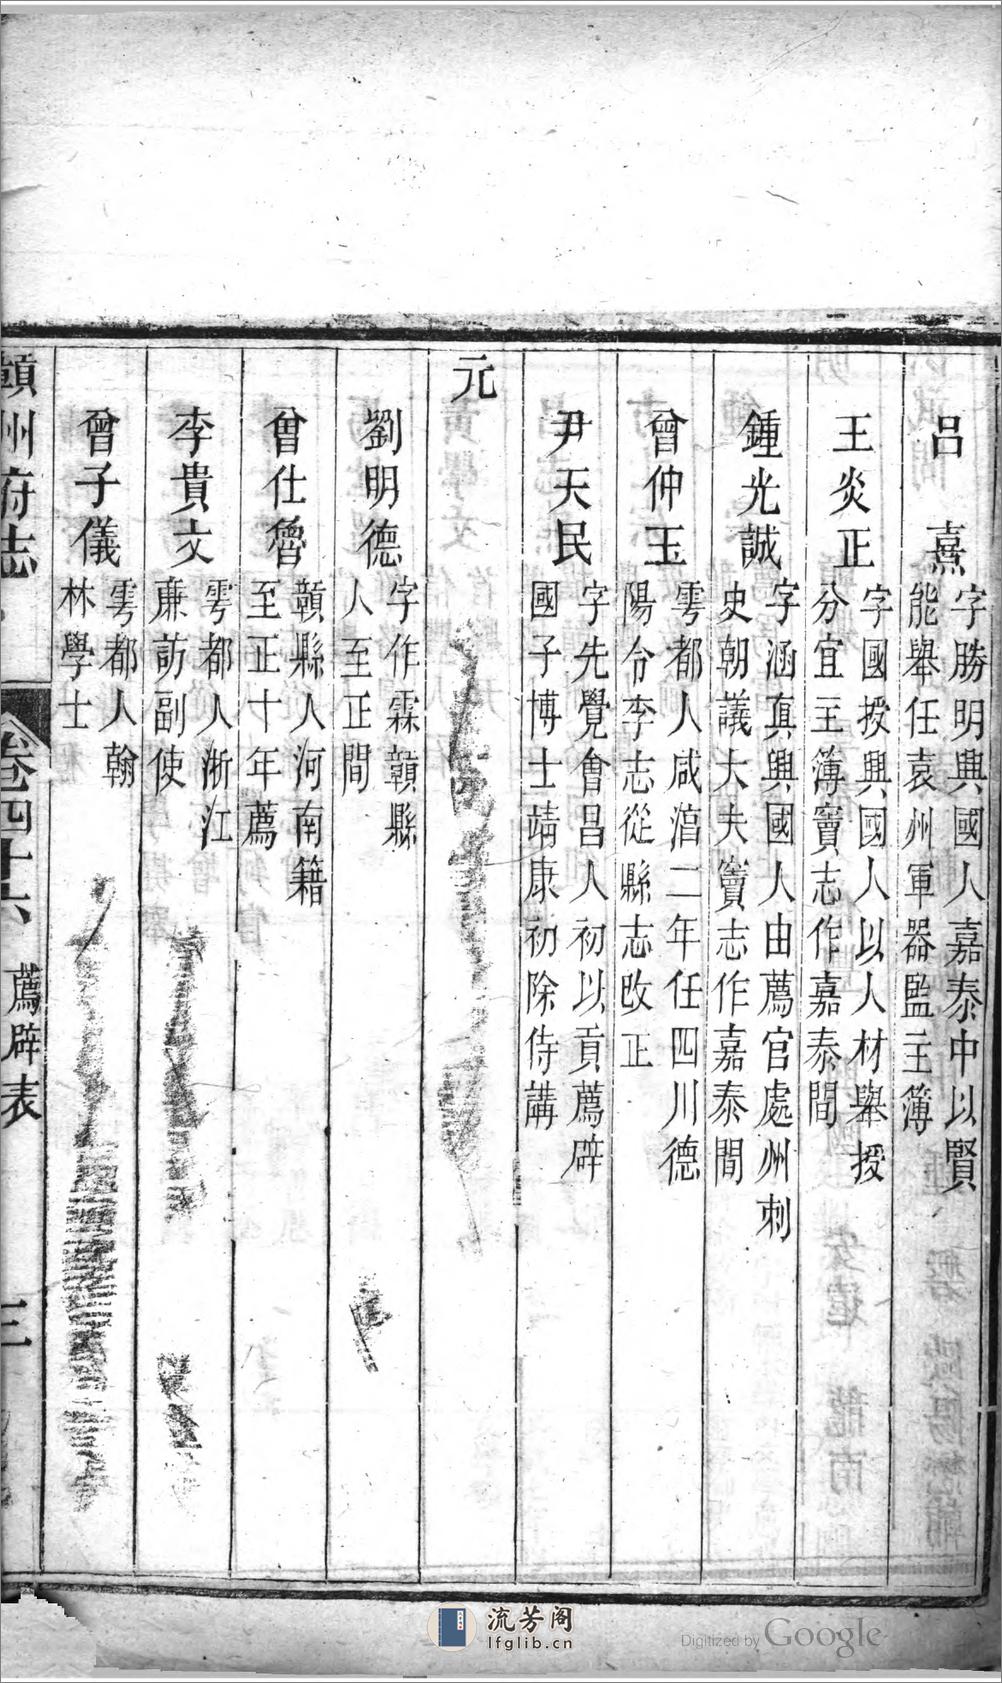 呂熹
字勝明興國人嘉泰中以賢
能舉任袁州軍器監主簿
王炎正
字國授興國人以人材舉授
分宜主簿竇志作嘉泰間
鍾光誠
字涵真興國人由薦官處州刺
史朝議大夫竇志作嘉泰間
曾仲玉
雩都人咸淳二年任四川德
陽令李志從縣志改正
尹天民
字先覺會昌人初以貢薦辟
國子博士靖康初除侍講
元
劉明德
字作霖贛縣
人至正間
曾仕魯
贛縣人河南籍
至正十年薦
李貴文
雩都人浙江
廉訪副使
曾子儀
雩都人翰
林學士
贛州府志
卷四十六
薦辟表
三
流芳阁
lfglib.cn
Digitized by Google